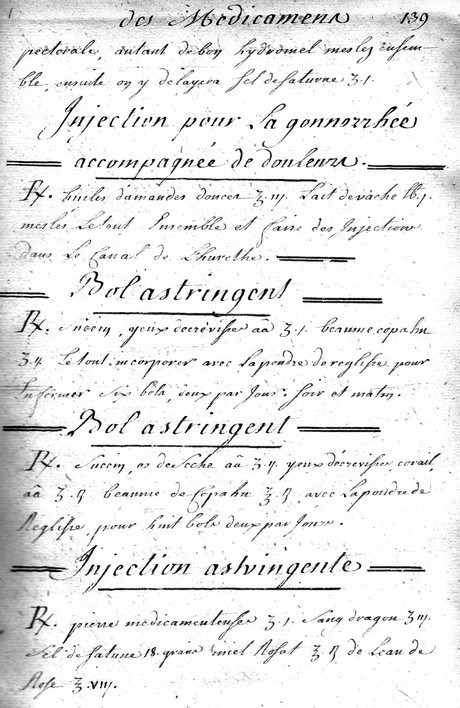 des Medicamens 139
pectorale, autant de bon hydromel mesles ensem-
ble, ensuite on y delayera sel de saturne ʒ.1.
Injection pour La gonnorrhée
accompagnée de douleurs.
℞. huiles damandes douces ℥.iij. Lait de vache ℔.j.
mesles Le tout Ensemble et faire des Injections
dans Le Canal de Lhurethe.
Bol astringent
℞. Succin, yeux decrevisses aa ʒ.1. beaume copahu
le tout incorporer avec La poudre de reglisse, pour
En former six bols, deux par Jour. soir et matin.
Bol astringent
℞. Succin, os de Seche aã yeux decrevisses corail,
aã beaume de Copahu avec La poudre de
Reglisse, pour huit bols deux par Jour.
Injection astringente
℞. pierre medicamenteuse ʒ.1. Sang dragon ʒ.iij.
Sel de Saturne 18. grains miel Rosat de Leau de
Rose ℥.viij.